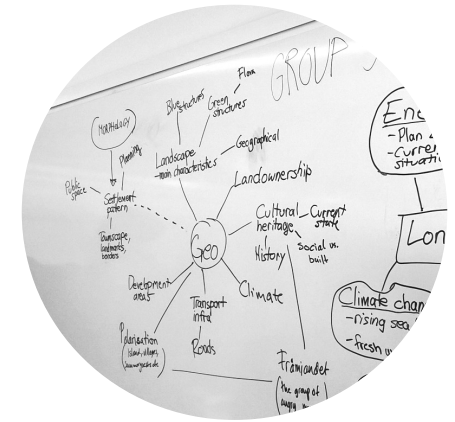 GROUP
Flora
Blue structures
Green
structures
MORPHOLOGY
Planning
Landscape
-main characteristics
Geographical
Public
space
Settlement
pattern
Landownership
Townscape,
landmarks,
borders
Cultural
heritage
Current
state
Social vs.
built
History
Geo
Development
areas
Transport
infra
Climate
Roads
Polarisation
Island, villages,
Främlandet
(the group of
angry
Ene
-Plan
-Curre
situati
Lon
Climate chan
-rising sea
-fresh